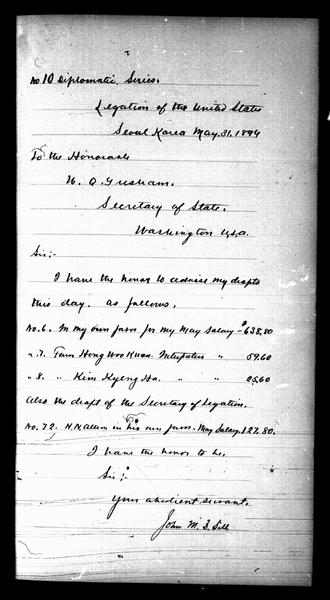 No 10 Diplomatic Series.
Legation of the United States
Seoul Korea May. 31. 1894
To the Honorable
W. Q. Gresham.
Secretary of State.
Washington U.S.A.
Sir:-
I have the honor to advise my drafts
this day. as follows.
No. 6. In my own favor for my May Salary - $638.80
" 7. Favr Hong Woo Kwan. Interpeters " 59.60
" 8. " Kim Kyeng Ha. " " 25.60
Also the draft of the Secretary of Legation.
No. 72. H. N. Allen in his own favor. May Salary. 127.80.
I have the honor to be.
Sir:
Your obedient servant.
John M. B. Sill